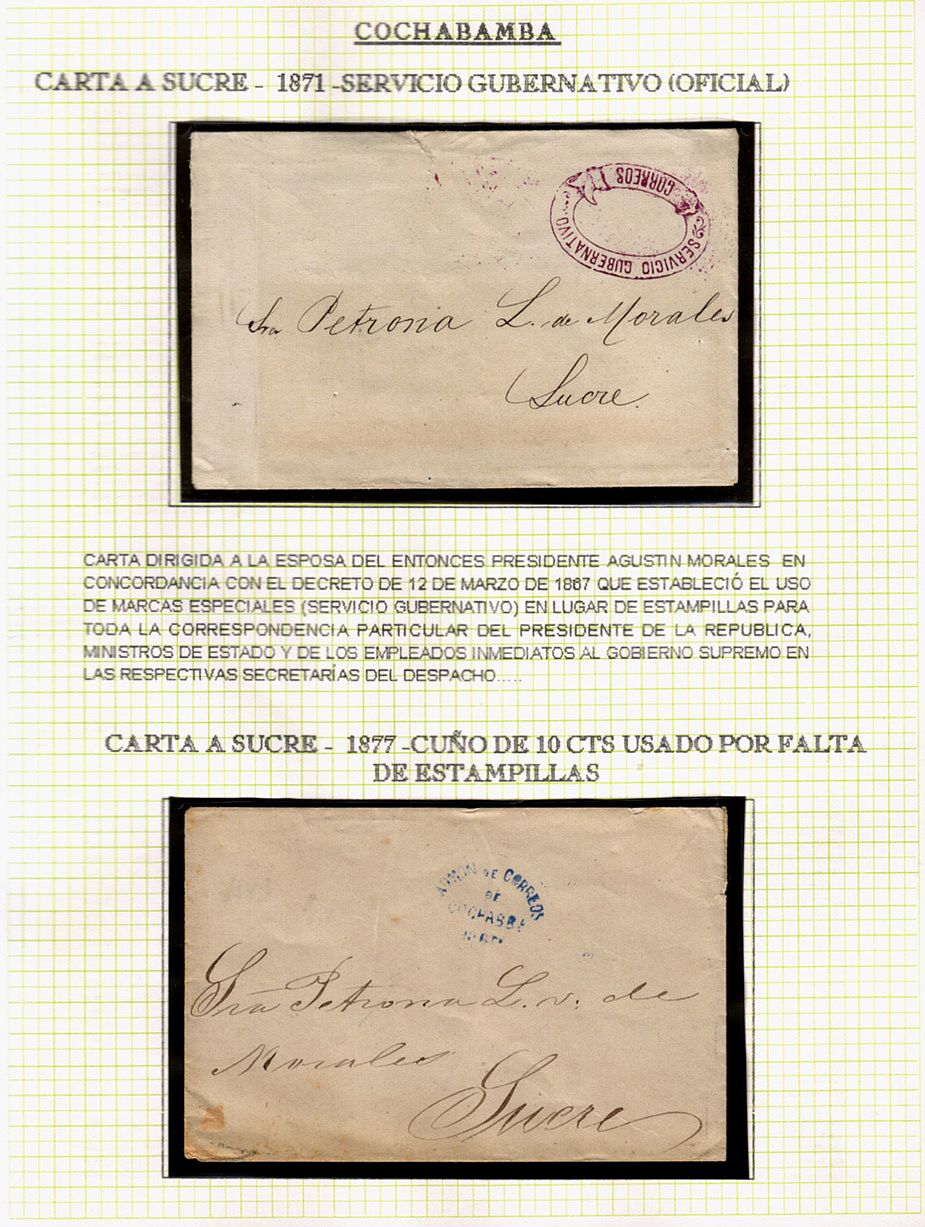 COCHABAMBA
CARTA A SUCRE - 1871 -SERVICIO GUBERNATIVO (OFICIAL)
CORREOS
SERVICIO GUBERNATIVO
Sra Petrona L. de Morales
Sucre.
CARTA DIRIGIDA A LA ESPOSA DEL ENTONCES PRESIDENTE AGUSTIN MORALES EN
CONCORDANCIA CON EL DECRETO DE 12 DE MARZO DE 1867 QUE ESTABLECIÓ EL USO
DE MARCAS ESPECIALES (SERVICIO GUBERNATIVO) EN LUGAR DE ESTAMPILLAS PARA
TODA LA CORRESPONDENCIA PARTICULAR DEL PRESIDENTE DE LA REPUBLICA,
MINISTROS DE ESTADO Y DE LOS EMPLEADOS INMEDIATOS AL GOBIERNO SUPREMO EN
LAS RESPECTIVAS SECRETARÍAS DEL DESPACHO.....
CARTA A SUCRE - 1877 -CUÑO DE 10 CTS USADO POR FALTA
DE ESTAMPILLAS
ADMON DE CORREOS
DE
COCHABBA
Sra Petrona L. v. de
Morales
Sucre